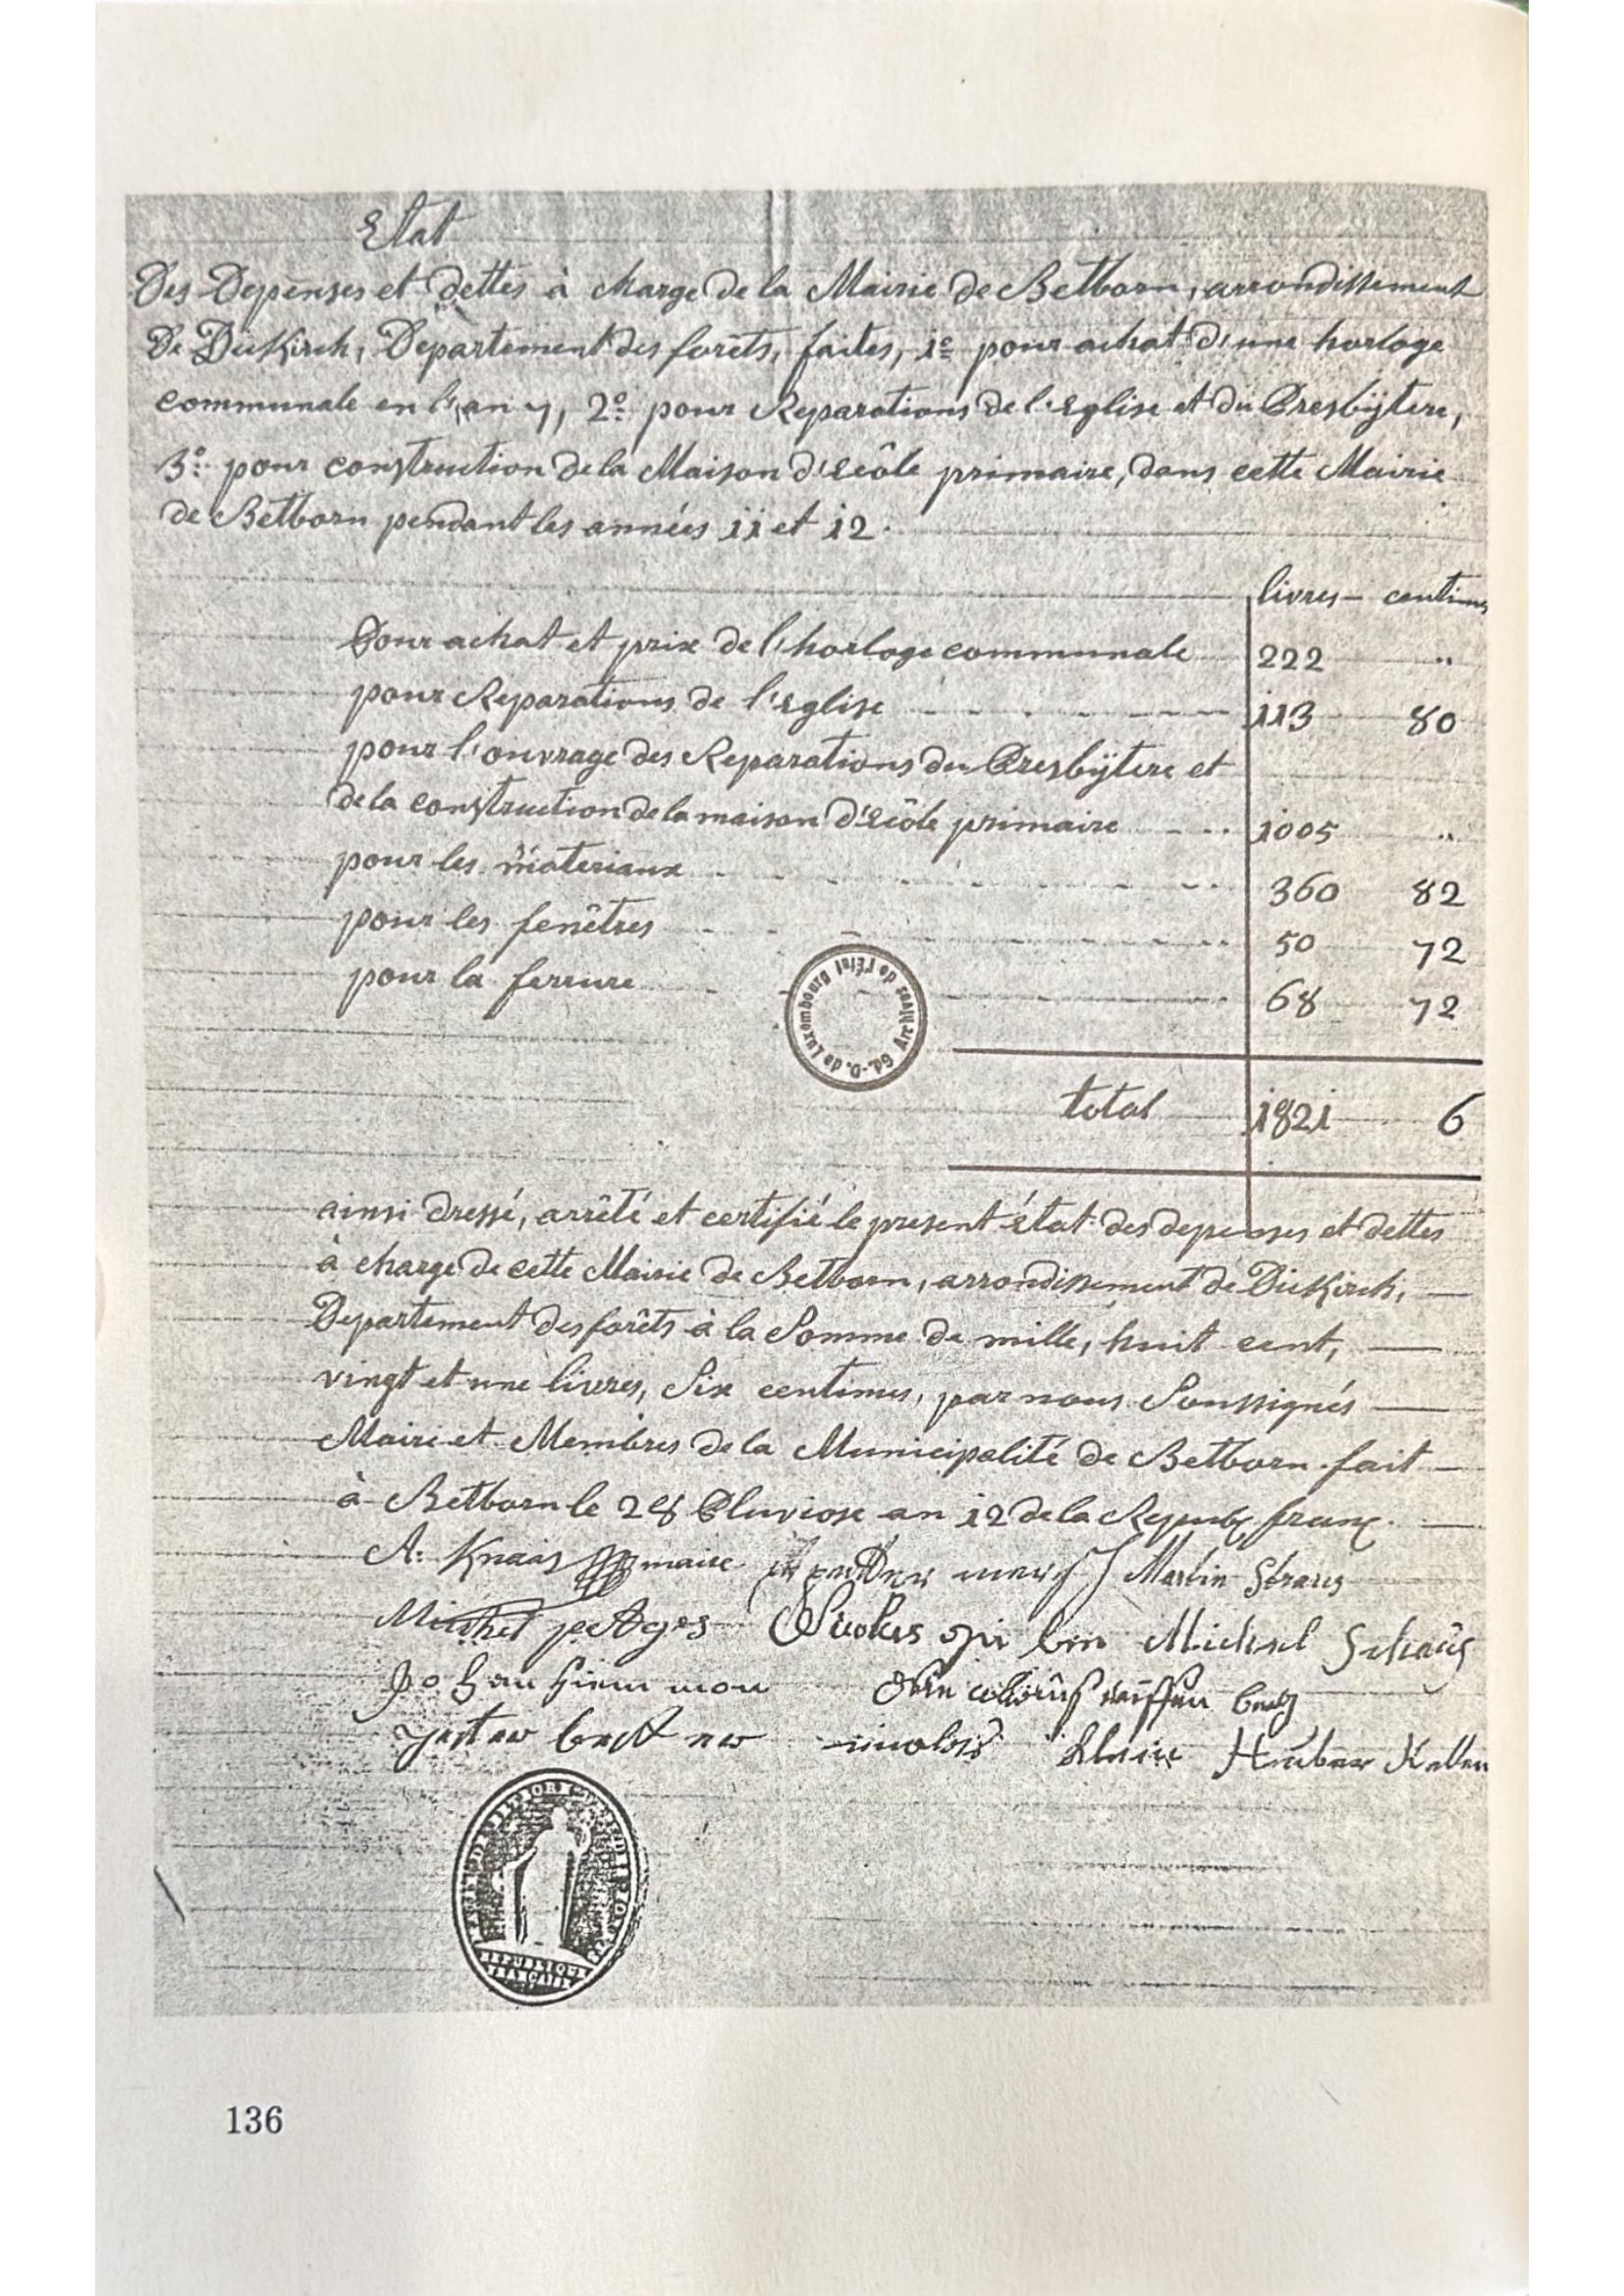 Etat
Des Depenses et dettes à charge de la Mairie de Betborn, arrondissement
De Diekirch, Departement des forêts, faites, 1º pour achat d'une horloge
communale en l'an 7, 2º pour Reparations de l'Eglise et du Presbÿtere,
3º pour construction de la Maison d'Ecôle primaire, dans cette Mairie
de Betborn pendant les années 11 et 12.
livres centimes
Pour achat et prix de l'horloge communale 222 "
pour Reparations de l'Eglise 113 80
pour l'ouvrage des Reparations du Presbÿtere et
de la construction de la maison d'Ecôle primaire 1005 "
pour les materiaux 360 82
pour les fenêtres 50 72
pour la ferrure 68 72
Archives de l'État Gd.-D. de Luxembourg
total 1821 6
ainsi dressé, arrêté et certifié le present état des depenses et dettes
à charge de cette Mairie de Betborn, arrondissement de Diekirch,
Departement des forêts à la Somme de mille, huit cent,
vingt et une livres, Six centimes, par nous Soussignés
Maire et Membres de la Municipalité de Betborn. fait
à Betborn le 28 Pluviose an 12 de la Repub franç.
A: maire Martin
Michel Nicolas Michael Schaus
Klein
REPUBLIQUE
FRANÇAISE
136